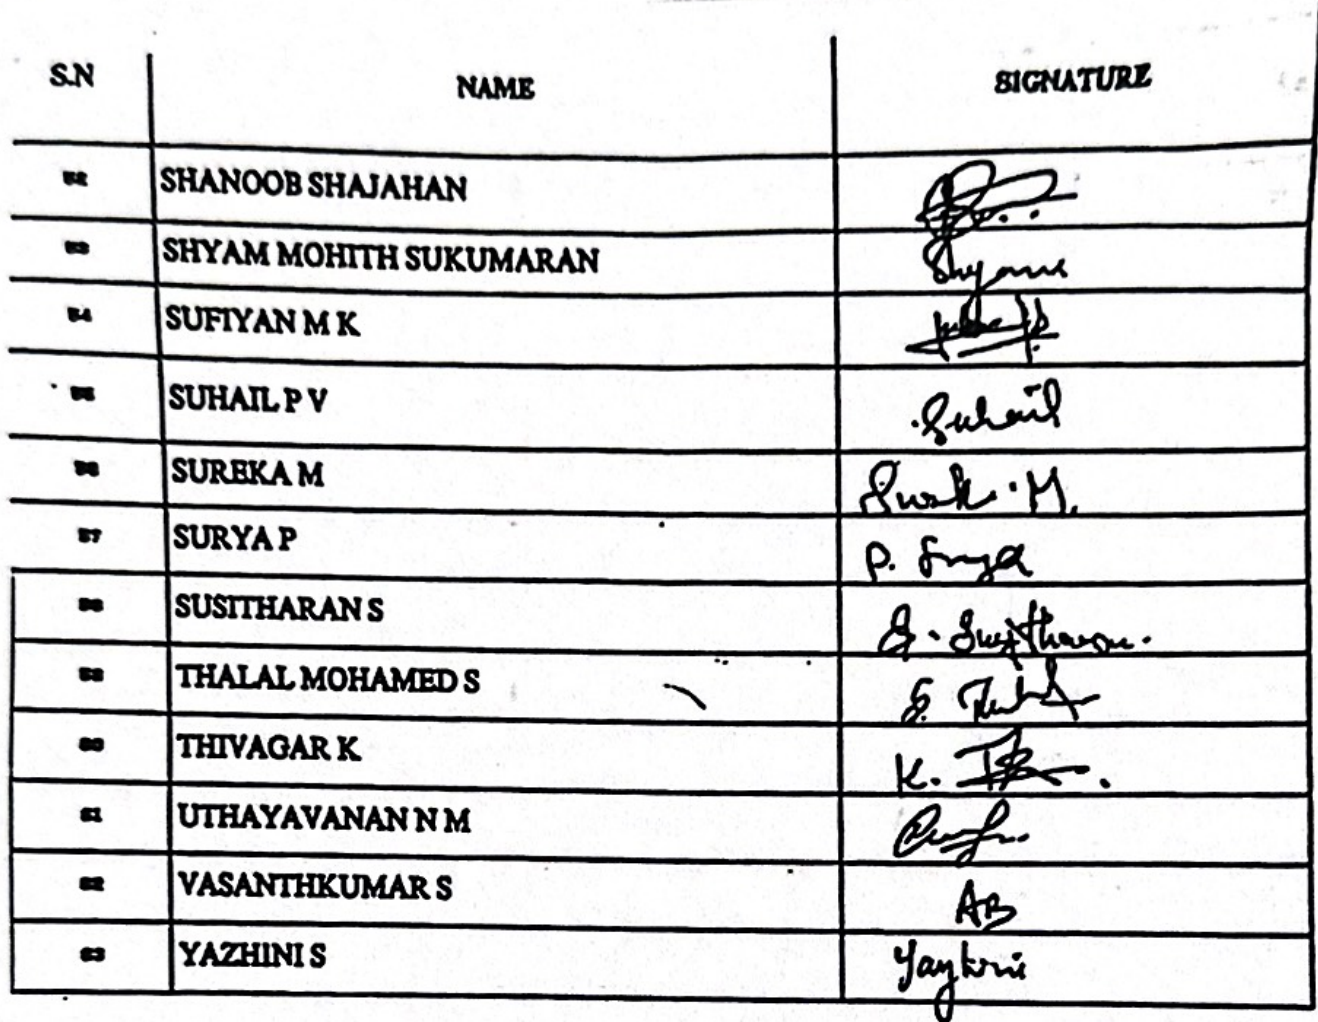 S.N NAME SIGNATURE
52 SHANOOB SHAJAHAN
53 SHYAM MOHITH SUKUMARAN Shyam
54 SUFIYAN M K
55 SUHAIL P V Suhail
56 SUREKA M M.
57 SURYA P P. Surya
58 SUSITHARAN S S. Susitharan.
59 THALAL MOHAMED S S.
60 THIVAGAR K K.
61 UTHAYAVANAN N M
62 VASANTHKUMAR S AB
63 YAZHINI S Yazhini